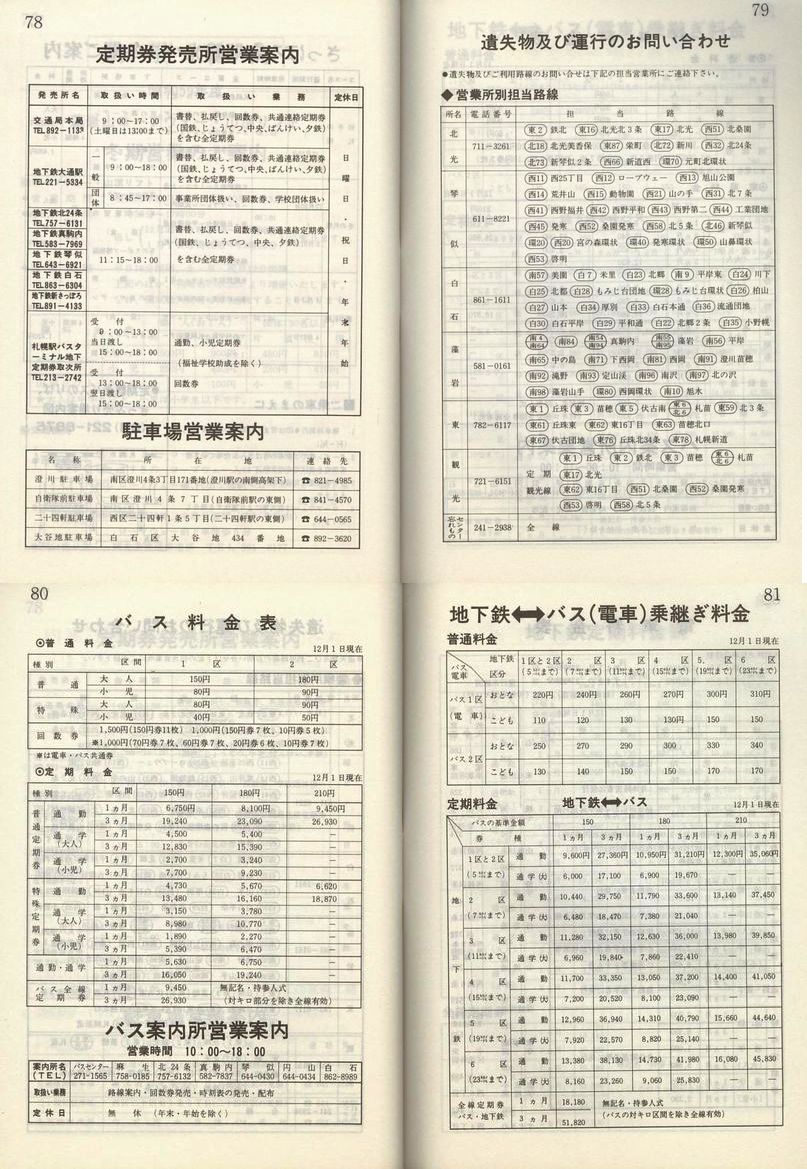 78
定期券発売所営業案内
発売所名 取扱い時間 取扱い業務 定休日
交通局本局 TEL892-113 9:00~17:00 (土曜日は13:00まで) 書替、払戻し、回数券、共通連絡定期券 (国鉄、じょうてつ、中央、ばんけい、夕鉄) を含む全定期券
地下鉄大通駅 TEL221-5334 一般 9:00~18:00 書替、払戻し、回数券、共通連絡定期券 (国鉄、じょうてつ、中央、ばんけい、夕鉄) を含む全定期券
団体 8:45~17:00 事業所団体扱い、回数券、学校団体扱い
地下鉄北24条 TEL757-6131
地下鉄真駒内 TEL583-7969
地下鉄琴似 TEL643-6921
地下鉄白石 TEL863-6304
地下鉄新さっぽろ TEL891-4133
11:15~18:00 書替、払戻し、回数券、共通連絡定期券 (国鉄、じょうてつ、中央、夕鉄) を含む全定期券
日曜日・祝日・年末年始
札幌駅バスターミナル地下定期券取次所 TEL213-2742
受付 9:00~13:00 当日渡し 15:00~18:00 通勤、小児定期券 (福祉学校助成を除く)
受付 13:00~18:00 翌日渡し 15:00~18:00 回数券
駐車場営業案内
名称 所在地 連絡先
澄川駐車場 南区澄川4条3丁目171番地(澄川駅の南側高架下) ☎821-4985
自衛隊前駐車場 南区澄川4条7丁目(自衛隊前駅の東側) ☎841-4570
二十四軒駐車場 西区二十四軒1条5丁目(二十四軒駅の東側) ☎644-0565
大谷地駐車場 白石区大谷地434番地 ☎892-3620
79
遺失物及び運行のお問い合わせ
●遺失物及びご利用路線のお問い合せは下記の担当営業所にご連絡下さい。
◆営業所別担当路線
所名 電話番号 担当路線
北光 711-3261 東2 鉄北 東16 北光北3条 東17 北光 西51 北桑園
北18 北光美香保 東87 栄町 北72 新川 西32 北24条
北73 新琴似2条 西66 新道西 環70 元町北環状
琴似 611-8221 西11 西25丁目 西12 ロープウェー 西13 旭山公園
西14 荒井山 西15 動物園 西21 山の手 西31 北7条
西41 西野福井 西42 西野平和 西43 西野第二 西44 工業団地
西45 発寒 西52 桑園発寒 西58 北5条 北46 新琴似
環20 西20 宮の森環状 環40 発寒環状 環50 山鼻環状
西53 啓明
白石 861-1611 南57 美園 白7 米里 白23 北郷 南9 平岸東 白24 川下
白25 北都 白28 もみじ台団地 環28 もみじ台環状 白26 柏山
白27 山本 白34 厚別 白33 白石本通 白36 流通団地
白30 白石平岸 白29 平和通 白22 北郷2条 白35 小野幌
藻岩 581-0161 南4 南64 南84 南54 南94 真駒内 南55 南95 藻岩 南56 平岸
南65 中の島 南71 下西岡 南81 西岡 南91 澄川苗穂
南92 滝野 南93 定山渓 南96 南沢 南97 北の沢
南98 藻岩山手 環80 西岡環状 南10 旭水
東 782-6117 東1 丘珠 東3 苗穂 東5 伏古南 東6 北6 札苗 東59 北3条
東61 丘珠東 東62 東16丁目 東63 苗穂北口
東67 伏古団地 東76 丘珠北34条 東78 札幌新道
観光 721-6151 定期 東1 丘珠 東2 鉄北 東3 苗穂 東6 北6 札苗
東17 北光
観光線 東62 東16丁目 西51 北桑園 西52 桑園発寒
西53 啓明 西58 北5条
忘れものセンター 241-2938 全線
80
バス料金表
◎普通料金 12月1日現在
種別 区間 1区 2区
普通 大人 150円 180円
小児 80円 90円
特殊 大人 80円 90円
小児 40円 50円
回数券 1,500円(150円券11枚) 1,000円(150円券7枚、10円券5枚)
※1,000円(70円券7枚、60円券7枚、20円券6枚、10円券7枚)
※は電車・バス共通券
◎定期料金 12月1日現在
種別 区間 150円 180円 210円
普通定期券 通勤 1ヵ月 6,750円 8,100円 9,450円
3ヵ月 19,240 23,090 26,930
通学(大人) 1ヵ月 4,500 5,400 —
3ヵ月 12,830 15,390 —
通学(小児) 1ヵ月 2,700 3,240 —
3ヵ月 7,700 9,230 —
特殊定期券 通勤 1ヵ月 4,730 5,670 6,620
3ヵ月 13,480 16,160 18,870
通学(大人) 1ヵ月 3,150 3,780 —
3ヵ月 8,980 10,770 —
通学(小児) 1ヵ月 1,890 2,270 —
3ヵ月 5,390 6,470 —
通勤・通学 1ヵ月 5,630 6,750 —
3ヵ月 16,050 19,240 —
バス全線定期券 1ヵ月 9,450 無記名・持参人式
3ヵ月 26,930 (対キロ部分を除き全線有効)
バス案内所営業案内
営業時間 10:00~18:00
案内所名 (TEL) バスセンター 271-1565 麻生 758-0185 北24条 757-6132 真駒内 582-7837 琴似 644-0430 円山 644-0434 白石 862-8989
取扱い業務 路線案内・回数券発売・時刻表の発売・配布
定休日 無休(年末・年始を除く)
81
地下鉄⟷バス(電車)乗継ぎ料金
普通料金 12月1日現在
バス電車 地下鉄区分 1区と2区(5㎞まで) 2区(7㎞まで) 3区(11㎞まで) 4区(15㎞まで) 5区(19㎞まで) 6区(23㎞まで)
バス1区(電車) おとな 220円 240円 260円 270円 300円 310円
こども 110 120 130 130円 150 150
バス2区 おとな 250 270 290 300 330 340
こども 130 140 150 150 170 170
定期料金 地下鉄⟷バス 12月1日現在
バスの基準金額 150 180 210
券種 1ヵ月 3ヵ月 1ヵ月 3ヵ月 1ヵ月 3ヵ月
地下鉄
1区と2区(5㎞まで) 通勤 9,600円 27,360円 10,950円 31,210円 12,300円 35,060円
通学(大) 6,000 17,100 6,900 19,670 — —
2区(7㎞まで) 通勤 10,440 29,750 11,790 33,600 13,140 37,450
通学(大) 6,480 18,470 7,380 21,040 — —
3区(11㎞まで) 通勤 11,280 32,150 12,630 36,000 13,980 39,850
通学(大) 6,960 19,840 7,860 22,410 — —
4区(15㎞まで) 通勤 11,700 33,350 13,050 37,200 14,400 41,050
通学(大) 7,200 20,520 8,100 23,090 — —
5区(19㎞まで) 通勤 12,960 36,940 14,310 40,790 15,660 44,640
通学(大) 7,920 22,570 8,820 25,140 — —
6区(23㎞まで) 通勤 13,380 38,130 14,730 41,980 16,080 45,830
通学(大) 8,160 23,260 9,060 25,830 — —
全線定期券 バス・地下鉄 1ヵ月 18,180 無記名・持参人式
3ヵ月 51,820 (バスの対キロ区間を除き全線有効)